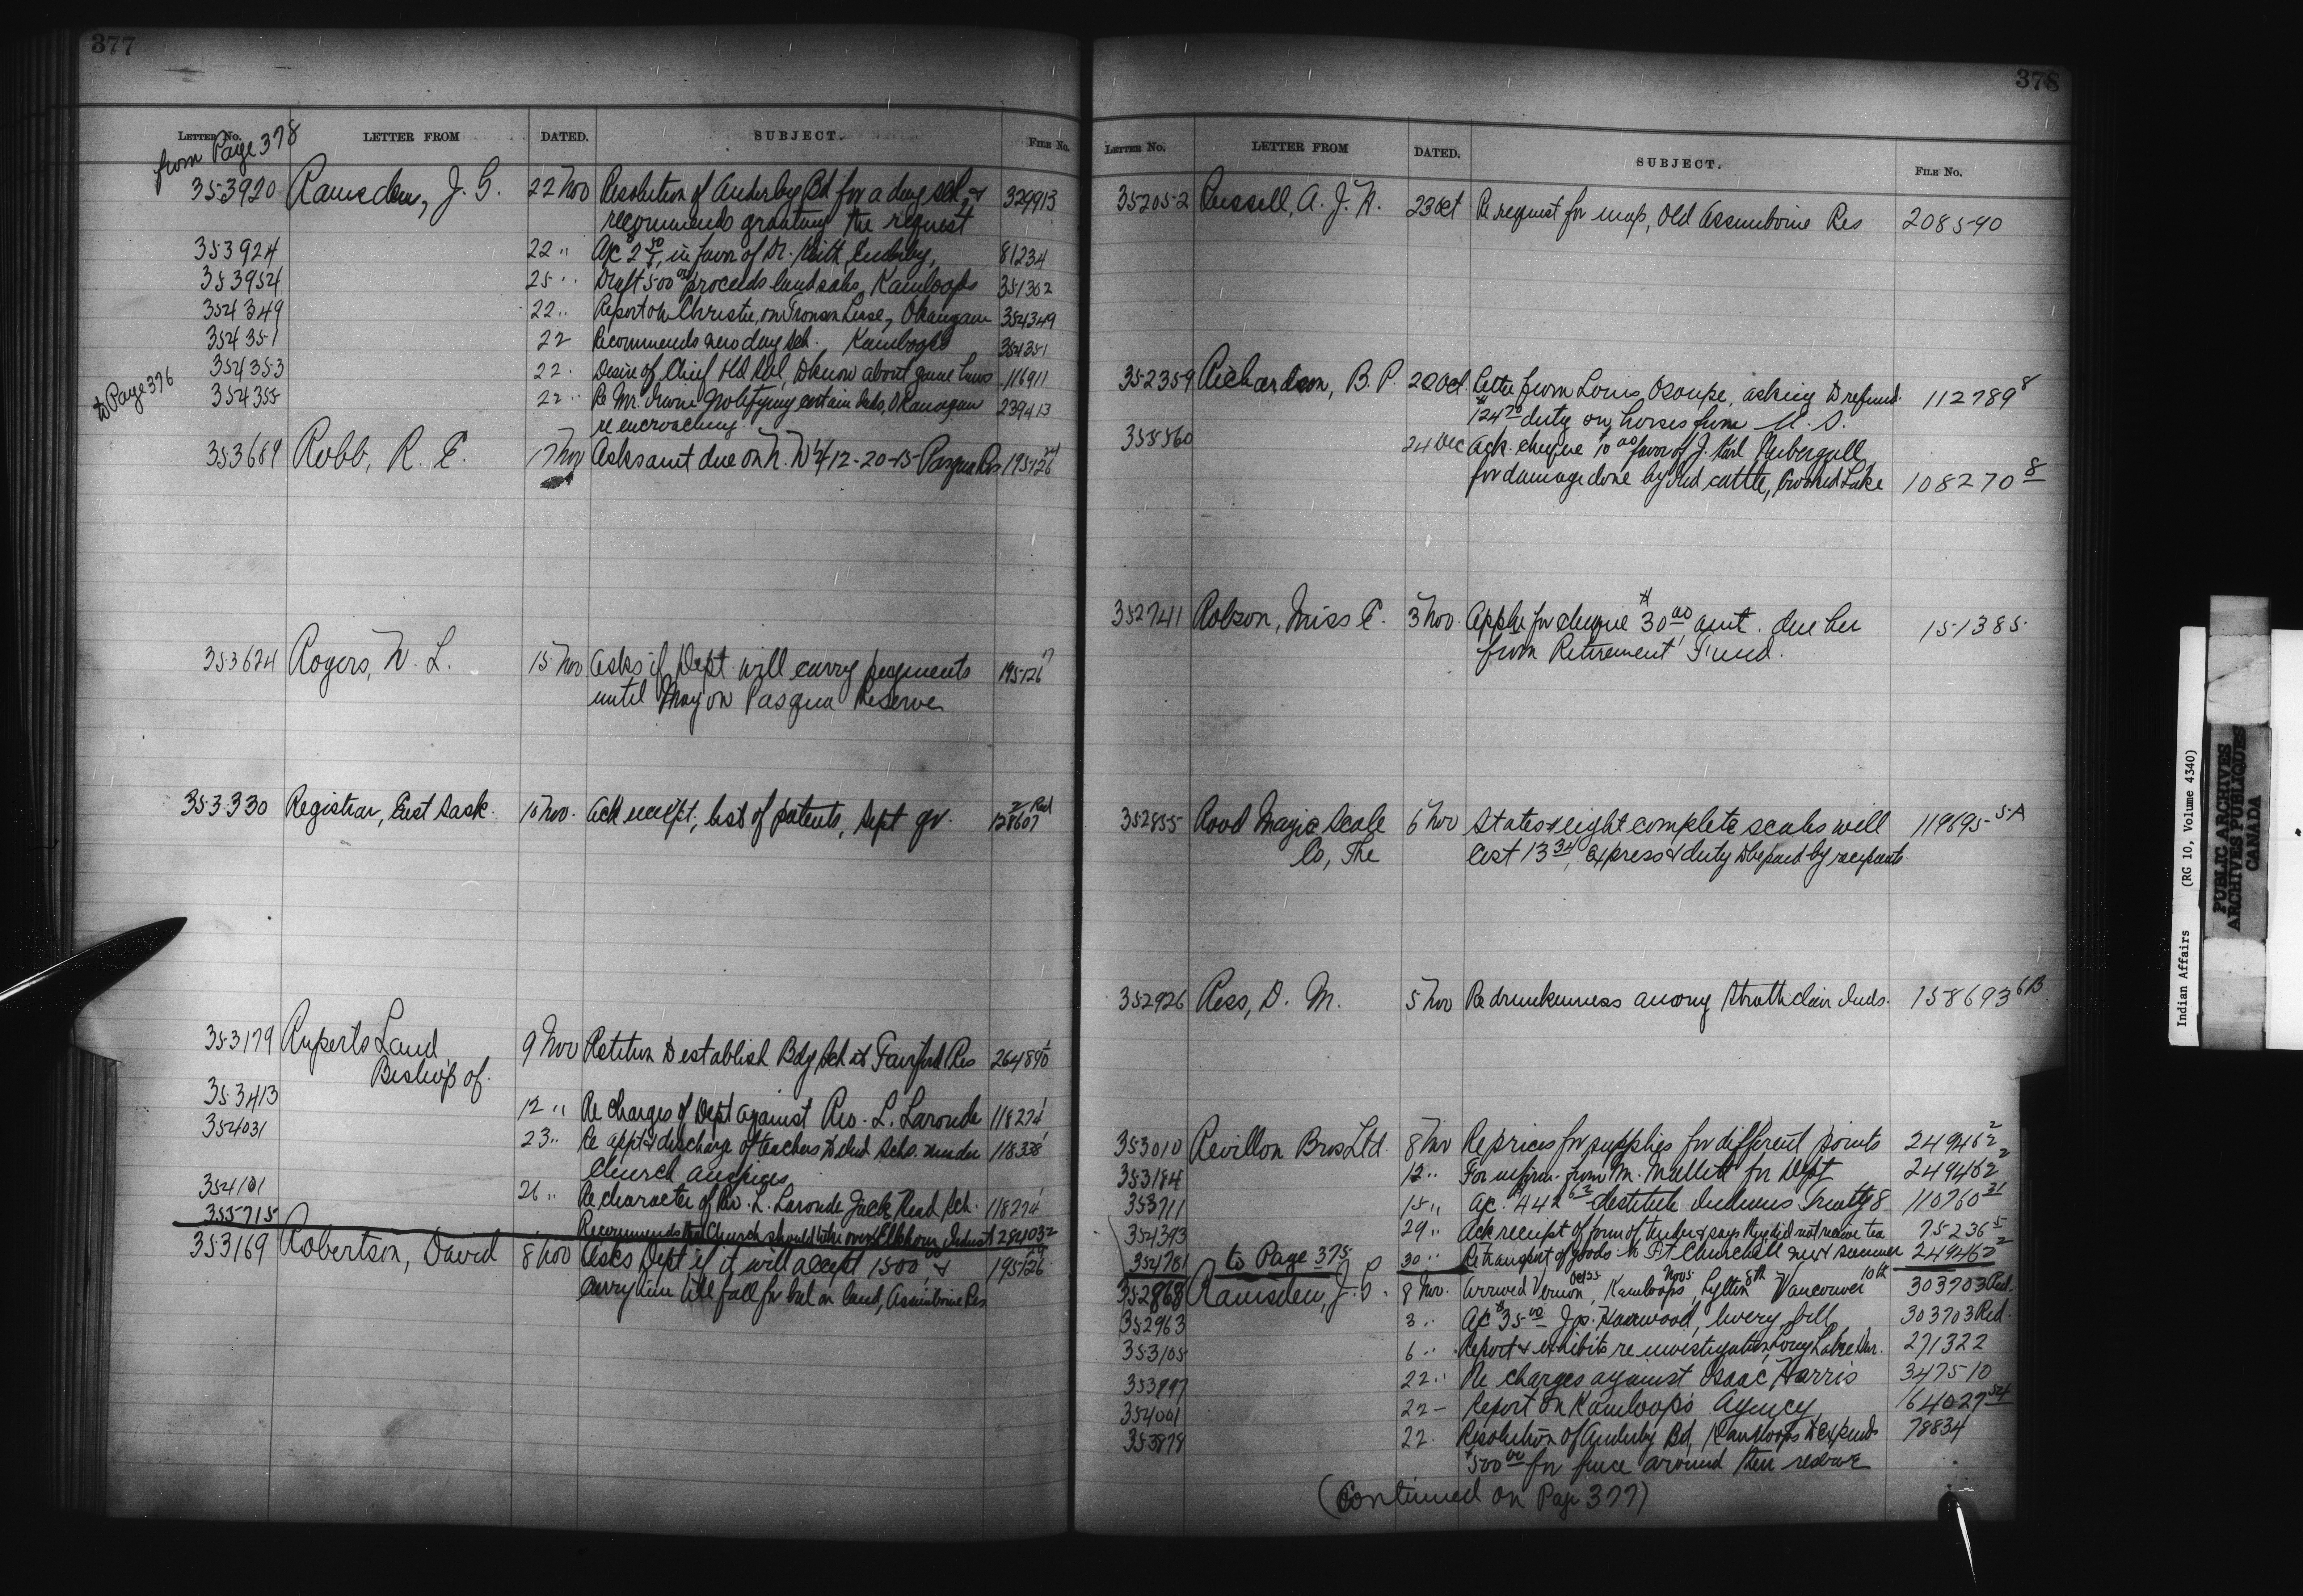 377
LETTER NO. LETTER FROM DATED. SUBJECT. FILE No.
from Page 378
353920 Ramsden, J. G. 22 Nov Resolution of Enderby Bd for a day sch, & 329913
recommends granting the request
353924 22 " A/c $2 50, in favor of Dr. Keith, Enderby, 81234
353954 25 " Draft 500 00 proceeds land sales, Kamloops 351302
354349 22 " Report on Christie, on Tronson Lease, Okanagan 354349
354351 22 Recommends new day sch. Kamloops 354351
354353 22 " Desire of Chief to know about game laws 116911
to Page 376
354355 22 " Re Mr. Irwin notifying certain Inds, Okanagan 239413
re encroaching
353689 Robb, R. E. 17 Nov Asks amt due on N.W ¼ 12-20-15 Pasqua Res 195126
353624 Rogers, W. L. 15 Nov Asks if Dept. will carry payments 195126
until May on Pasqua Reserve
353330 Registrar, East Sask. 10 Nov. Ack receipt, list of patents, Sept qr. 128607 2 Red
353179 Ruperts Land 9 Nov Petition to establish Bdg Sch at Fairford Res 264890 1
Bishop of.
353413 12 " Re charges of Dept against Rev. L. Laronde 118274 1
354031 23 " Re appt & discharge of teachers to Ind Schs. under 118338 1
Church auspices
354101 26 " Re character of Rev. L. Laronde Jack Head Sch. 118274 1
355715 Recommends that Church should take over Elkhorn Indust 284032
353169 Robertson, David 8 Nov Asks Dept if it will accept 1500 00, & 195126
carry him till fall for bal on land, Assiniboine Res
378
LETTER NO. LETTER FROM DATED. SUBJECT. FILE No.
352052 Russell, A. J. 23 Oct Re request for map, Old Assiniboine Res 208590
352359 Richardson, B. P. 20 Oct. Letter from Louis Osoupe, asking to refund 112789 8
$124 70 duty on horses from U. S.
355560 24 Dec Ack. cheque $10 00 favor of J. Karl Nubergall
for damage done by Ind cattle, Crooked Lake 108270 8
352741 Robson, Miss E. 3 Nov. Applie for cheque $30 00, amt. due her 151385
from Retirement Fund.
352855 Rood Magic Scale 6 Nov States eight complete scales will 119695 5A
Co, The Cost 13 34, express & duty to be paid by recipients
352926 Ross, D. M. 5 Nov Re drunkenness among Strathclair Inds. 158693 6B
353010 Revillon Bros Ltd. 8 Nov Re prices for supplies for different points 249462 2
353184 12 " For inform. from M. for Dept 249462 2
353711 15 " A/c. $442 destitute Indians Treaty 8 110760 21
354393 29 " Ack receipt of form of tender & says they did not receive tea 75236 5
354781 to Page 375 30 " Re transport of goods to Ft. Churchill next summer 249462 2
352868 Ramsden, J. G. 8 Nov. Arrived Vernon Oct 25, Kamloops Nov 5, Lytton 8th, Vancouver 10th 303703 Red.
352963 3 " A/c $35 00 Jos. Harwood, livery bill 303703 Red.
353105 6 " Report & exhibits re investigation Long Lake 271322
353897 22 " Re charges against Isaac Harris 347510
354001 22 - Report on Kamloops Agency 164027
353878 22 " Resolution of Enderby Bd, Kamloops to expend 78834
$500 00 for fence around their reserve
(Continued on Page 377)
Indian Affairs (RG 10, Volume 4340)
PUBLIC ARCHIVES
ARCHIVES PUBLIQUES
CANADA